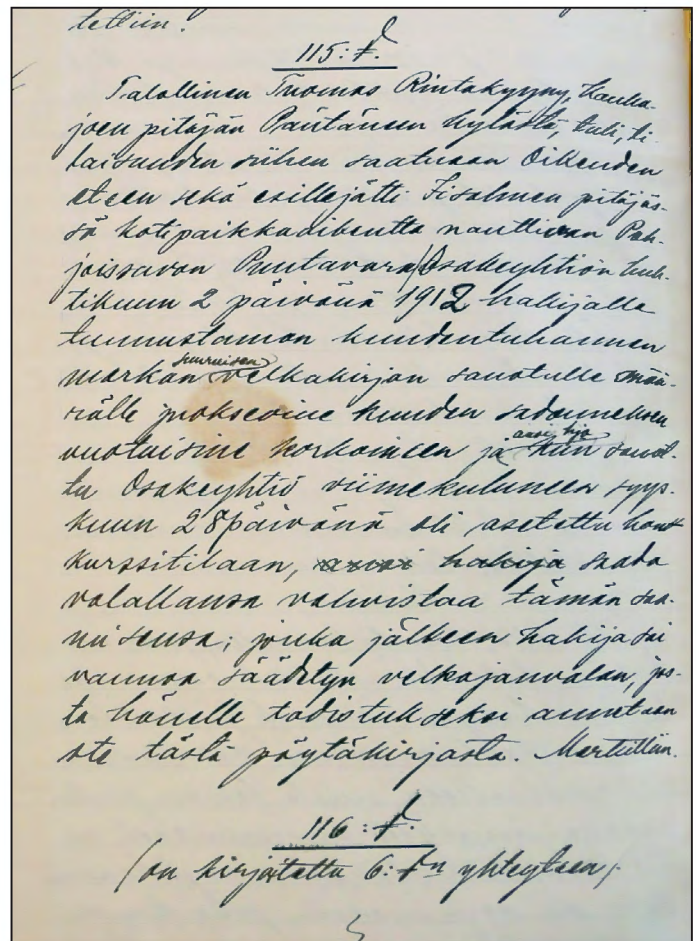 tettiin.
115: §.
Talollinen Tuomas Rintakyyny, Kauha-
joen pitäjän Päntäneen kylästä, tuli, ti-
laisuuden siihen saatuaan Oikeuden
eteen sekä esillejätti Iisalmen pitäjäs-
sä kotipaikkaoikeutta nauttivan Poh-
joissavon Puutavara Osakeyhtiön huh-
tikuun 2 päivänä 1912 hakijalle
tunnustaman kuudentuhannen
suuruisen
markan velkakirjan sanotulle mää-
rälle juoksevine kuuden sadanneksen
vuotuisine korkoineen ja
anoi hja
kun sanot-
tu Osakeyhtiö viimekuluneen syys-
kuun 28 päivänä oli asetettu kon-
kurssitilaan, anoi hakija saada
valallansa vahvistaa tämän saa-
misensa; jonka jälkeen hakija sai
vannoa säädetyn velkojanvalan, jos-
ta hänelle todistukseksi annetaan
ote tästä pöytäkirjasta. Merkittiin.
116: §.
(on kirjotettu 6: §n yhteyteen)